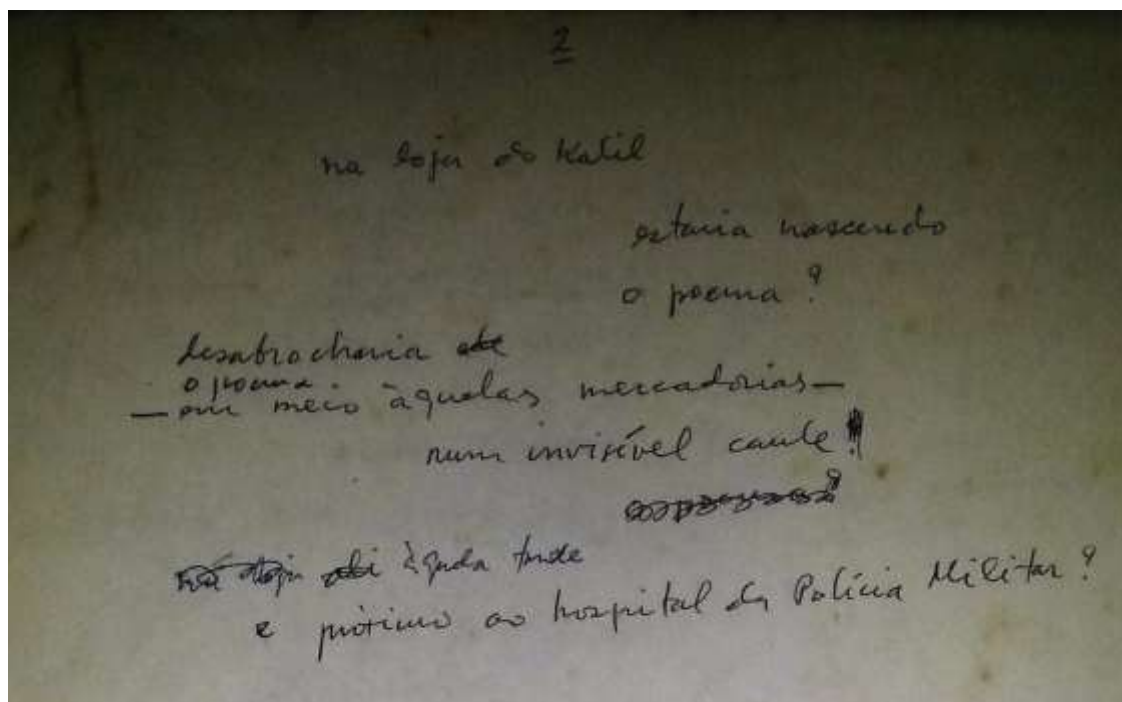 2
na loja do Kalil
estaria nascendo
o poema?
desabrocharia
o poema
— em meio àquelas mercadorias —
num invisível caule
àquela tarde
e próximo ao hospital da Polícia Militar?